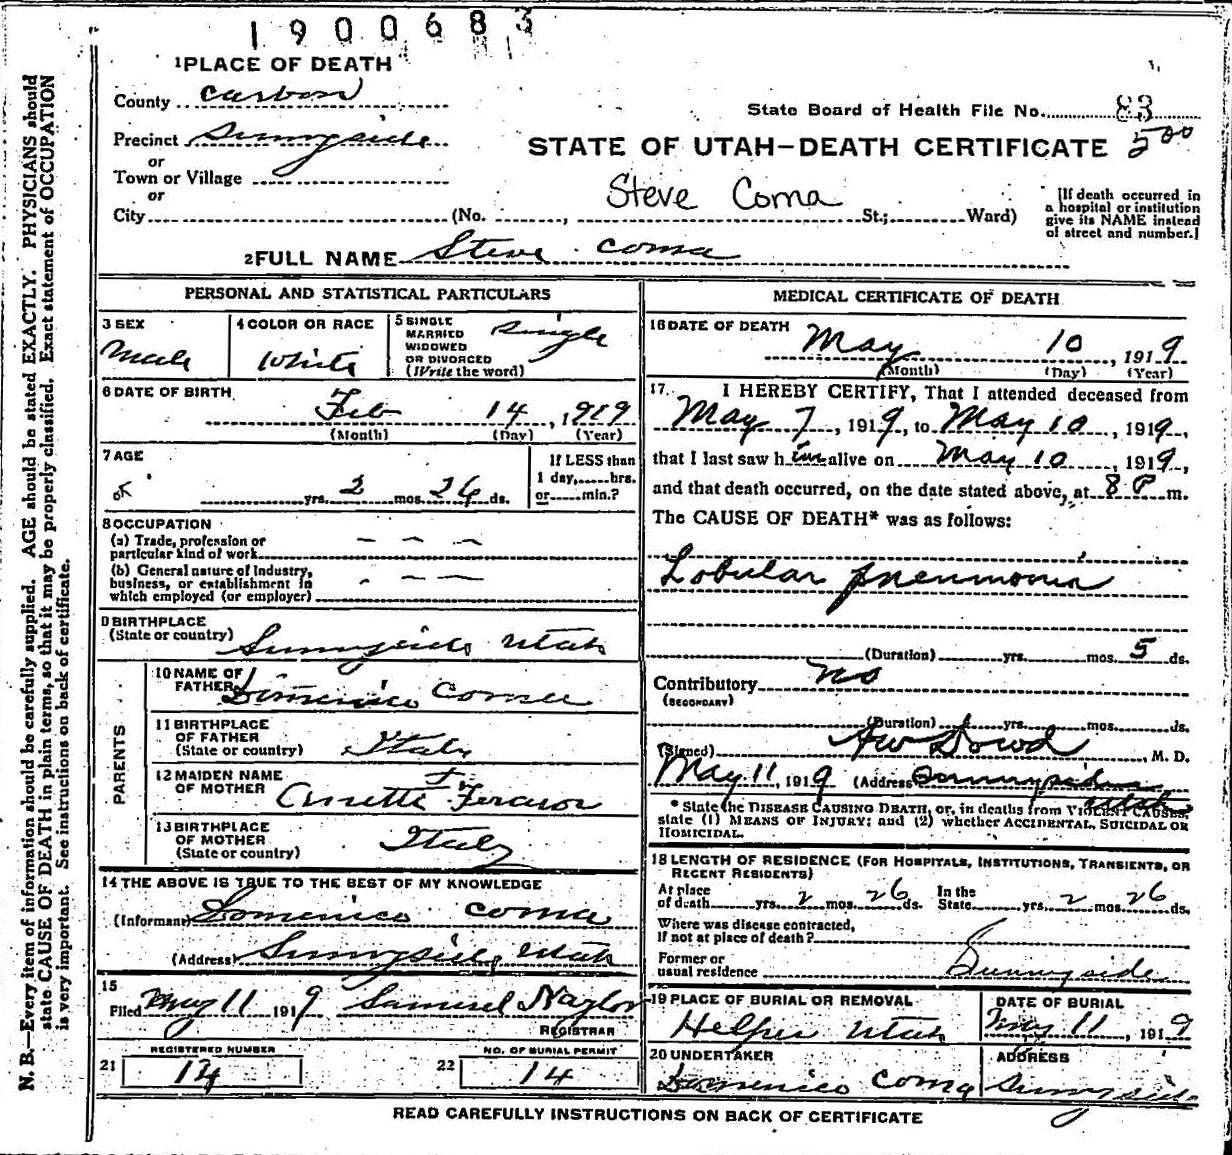 1900683
1 PLACE OF DEATH
County Carbon
State Board of Health File No. 83
Precinct Sunnyside
500
STATE OF UTAH—DEATH CERTIFICATE
or
Town or Village
or
Steve Coma
City (No. , St.; Ward)
[If death occurred in
a hospital or institution
give its NAME instead
of street and number.]
2 FULL NAME Steve Coma
PERSONAL AND STATISTICAL PARTICULARS
3 SEX
Male
4 COLOR OR RACE
White
5 SINGLE
MARRIED
WIDOWED
OR DIVORCED
(Write the word)
Single
6 DATE OF BIRTH
Feb 14, 1919
(Month) (Day) (Year)
7 AGE
yrs. 2 mos. 26 ds.
If LESS than
1 day, hrs.
or min.?
8 OCCUPATION
(a) Trade, profession or
particular kind of work
(b) General nature of Industry,
business, or establishment in
which employed (or employer)
9 BIRTHPLACE
(State or country) Sunnyside Utah
PARENTS
10 NAME OF
FATHER Domenico Coma
11 BIRTHPLACE
OF FATHER
(State or country) Italy
12 MAIDEN NAME
OF MOTHER
13 BIRTHPLACE
OF MOTHER
(State or country) Italy
14 THE ABOVE IS TRUE TO THE BEST OF MY KNOWLEDGE
(Informant) Domenico Coma
(Address) Sunnyside, Utah
15
Filed May 11 1919 Samuel Naylor
REGISTRAR
21 REGISTERED NUMBER
14
22 NO. OF BURIAL PERMIT
14
MEDICAL CERTIFICATE OF DEATH
16 DATE OF DEATH
May 10, 1919
(Month) (Day) (Year)
17. I HEREBY CERTIFY, That I attended deceased from
May 7, 1919, to May 10, 1919,
that I last saw him alive on May 10, 1919,
and that death occurred, on the date stated above, at 8 P m.
The CAUSE OF DEATH* was as follows:
Lobular pneumonia
(Duration) yrs. mos. 5 ds.
Contributory no
(SECONDARY)
(Duration) yrs. mos. ds.
(Signed) AW Dowd, M. D.
May 11, 1919 (Address) Sunnyside
Utah
* State the DISEASE CAUSING DEATH, or, in deaths from VIOLENT CAUSES,
state (1) MEANS OF INJURY; and (2) whether ACCIDENTAL, SUICIDAL OR
HOMICIDAL.
18 LENGTH OF RESIDENCE (FOR HOSPITALS, INSTITUTIONS, TRANSIENTS, OR
RECENT RESIDENTS)
At place
of death yrs. 2 mos. 26 ds.
In the
State yrs. 2 mos. 26 ds.
Where was disease contracted,
If not at place of death?
Former or
usual residence Sunnyside
19 PLACE OF BURIAL OR REMOVAL
Helper Utah
DATE OF BURIAL
May 11, 1919
20 UNDERTAKER
Domenico Coma
ADDRESS
Sunnyside
READ CAREFULLY INSTRUCTIONS ON BACK OF CERTIFICATE
N. B.—Every item of information should be carefully supplied. AGE should be stated EXACTLY. PHYSICIANS should
state CAUSE OF DEATH in plain terms, so that it may be properly classified. Exact statement of OCCUPATION
is very important. See instructions on back of certificate.